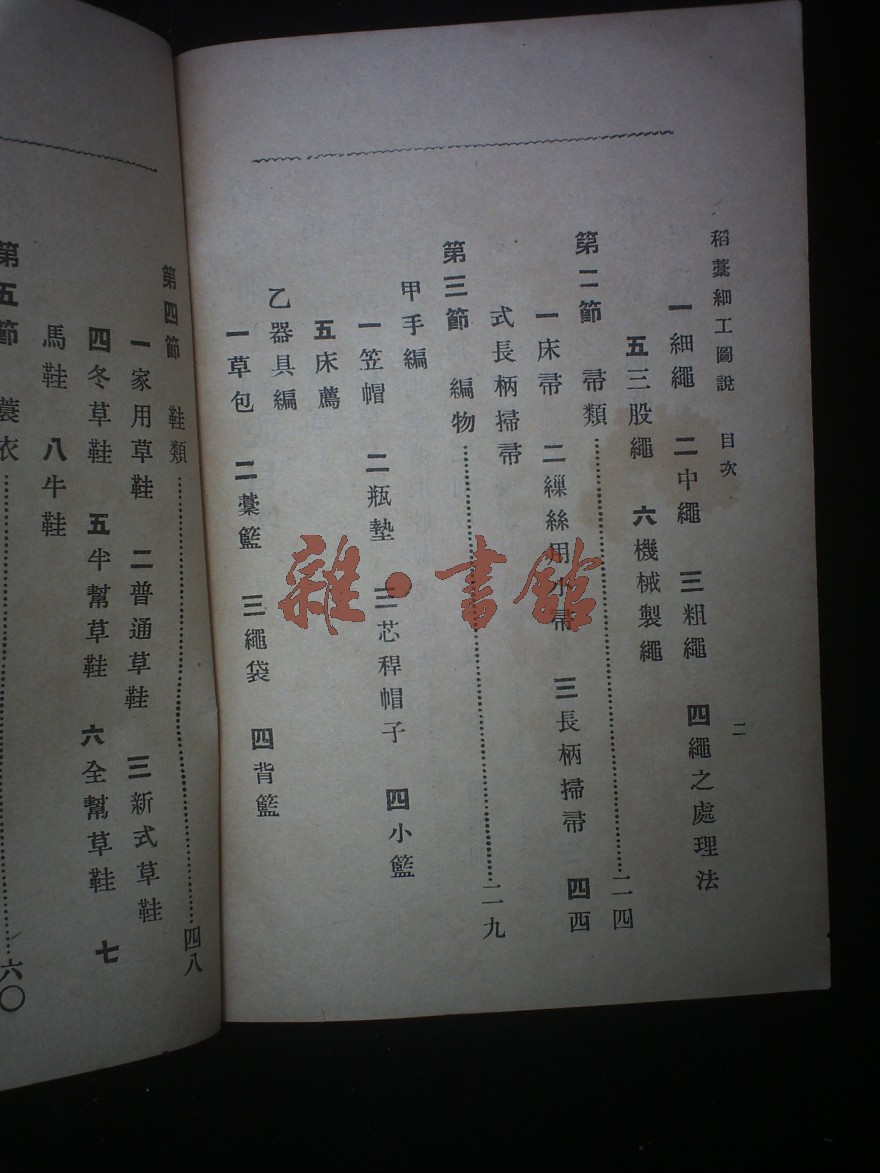 稻藁細工圖說　目次　二
一細繩　二中繩　三粗繩　四繩之處理法
五三股繩　六機械製繩
第二節　帚類……二四
一床帚　二繅絲用小帚　三長柄掃帚　四西
式長柄掃帚
第三節　編物……二九
甲手編
一笠帽　二瓶墊　三芯稈帽子　四小籃
五床薦
乙器具編
一草包　二藁籃　三繩袋　四背籃
第四節　鞋類……四八
一家用草鞋　二普通草鞋　三新式草鞋
四冬草鞋　五半幫草鞋　六全幫草鞋　七
馬鞋　八牛鞋
第五節　蓑衣……六〇
雜·書館